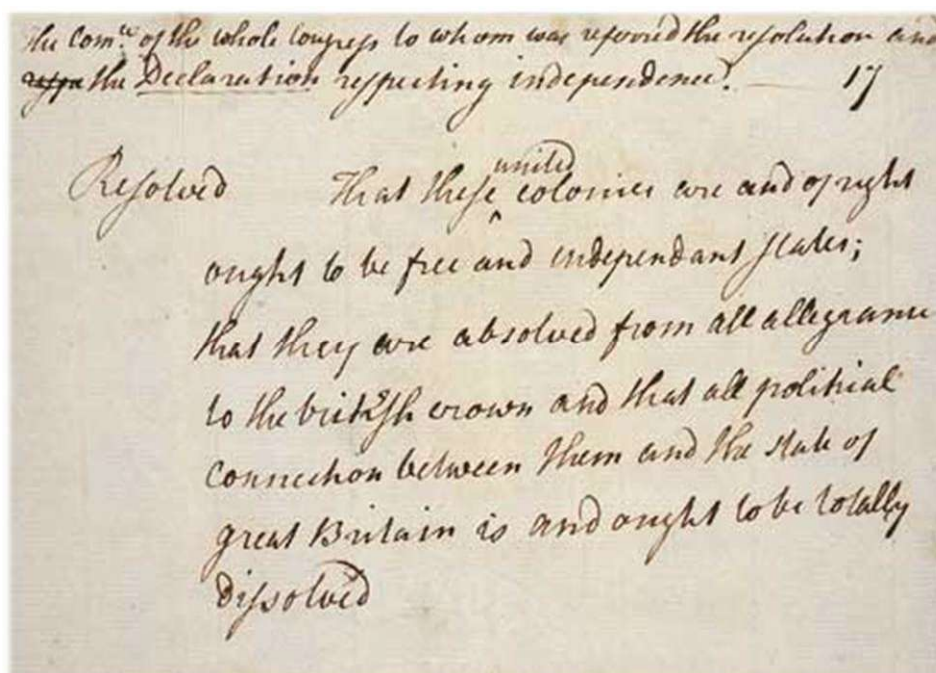 The Comte. of the whole Congress to whom was referred the resolution and
the Declaration respecting independence. — 17
united
Resolved That these ‸ colonies are and of right
ought to be free and independant states;
that they are absolved from all allegiance
to the british crown and that all political
connection between them and the state of
great Britain is and ought to be totally
dissolved